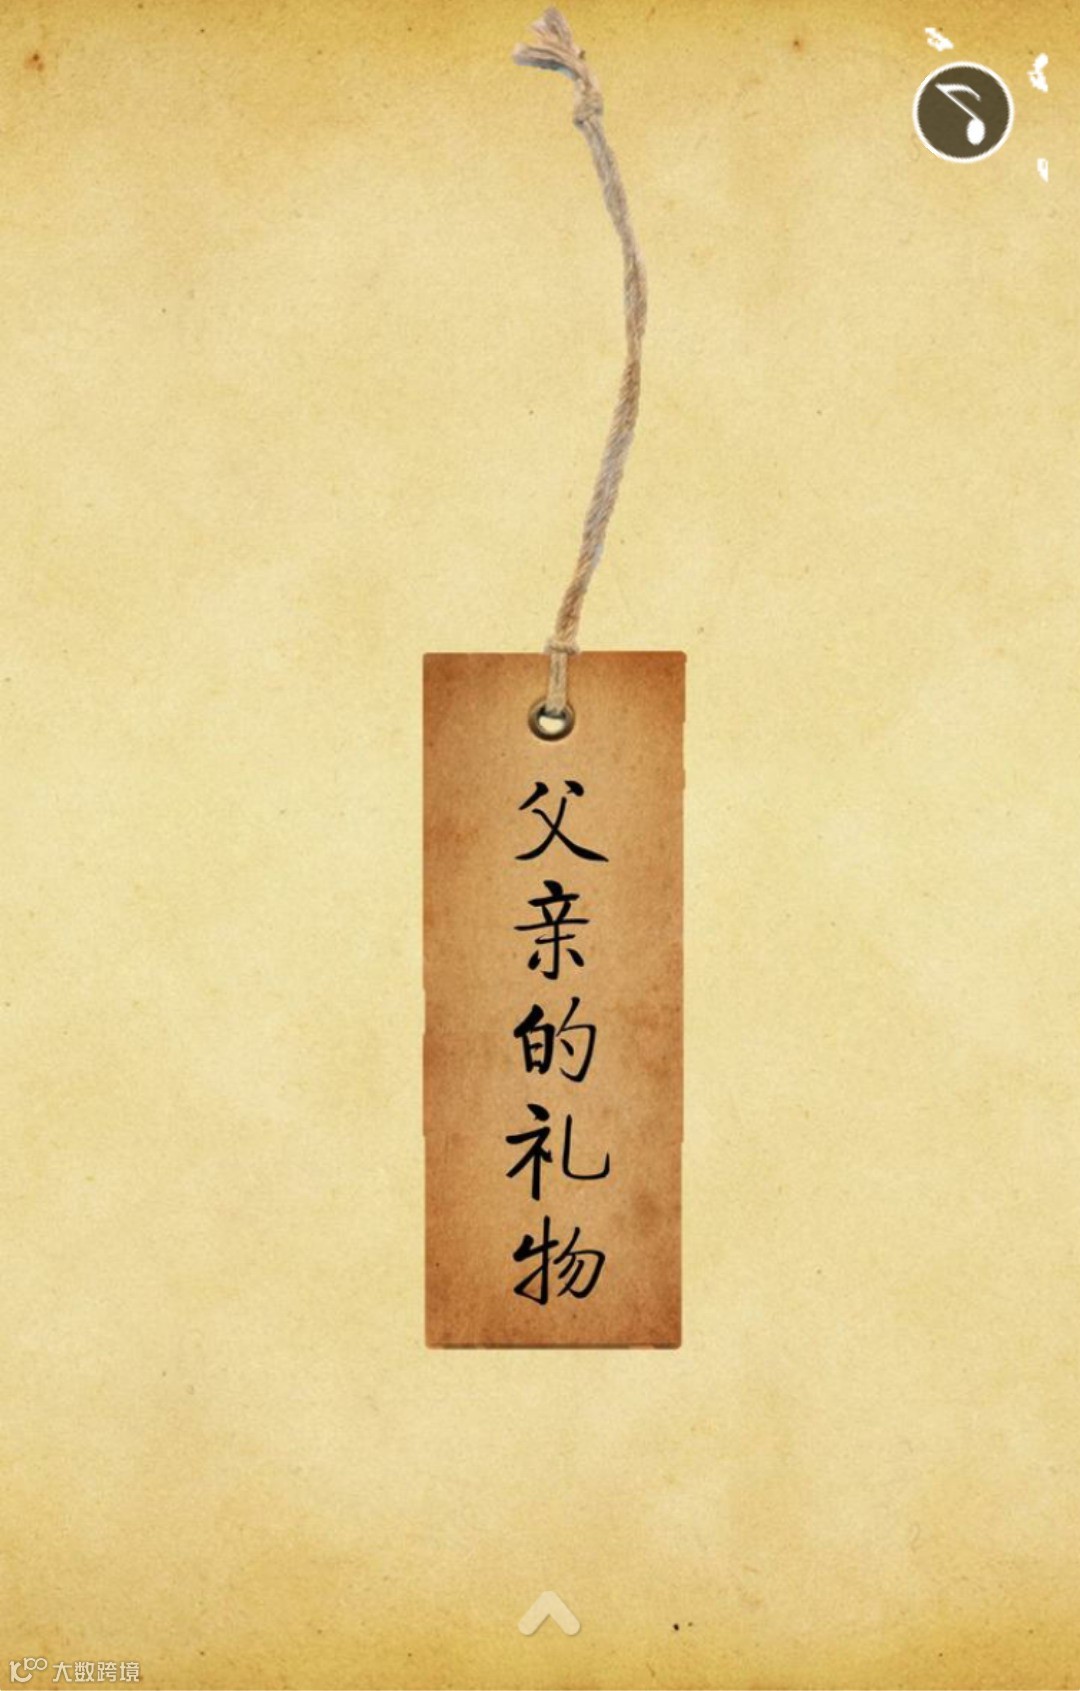 父亲的礼物
大数跨境